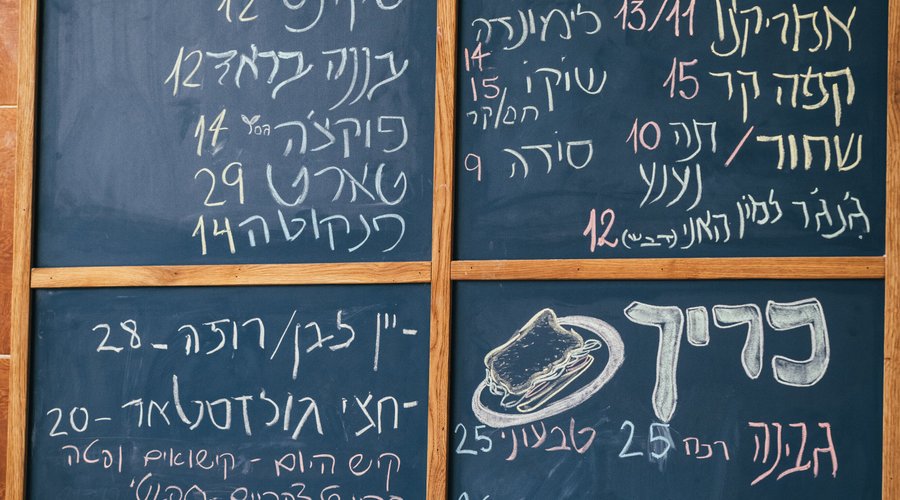 אמריקנו 13/11
קפה קר 15
שחור / תה 10
נענע
ג'נג'ר למון האני (דבש) 12
לימונדה
14
שוקו 15
חם/קר
סודה 9
12
בננה בראד 12
פוקצ'ה 14
טארט 29
פנקוטה 14
כריך
גבינה 25 טבעוני 25
-יין לבן/רוזה - 28
-חצי גולדסטאר - 20
קיש היום - קישואים ופטה